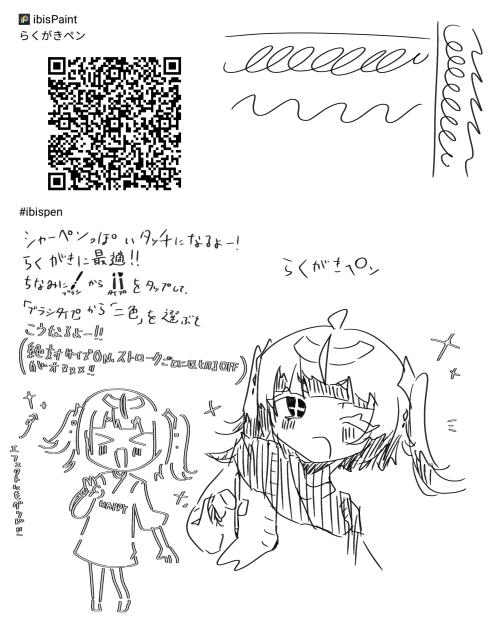 ibisPaint
らくがきペン
#ibispen
シャーペンっぽいタッチになるよー!
らくがきに最適!!
ちなみに ブラシ から タイプ をタップして、
「ブラシタイプ」から「二色」を選ぶと
こうなるよー!!
(絶対サイズON、ストロークごとに区切るOFF
がオススメ!!)
らくがきペン
HAPPY
エフェクトにもグッド!!